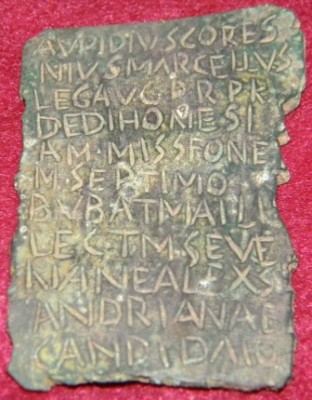 AVFIDIVSCORES
NIVSMARCELLVS
LEG AVG P R P R
DEDI HONESI
AM MISSIONE
M SEPTIMO
LEG I M SEVE
RIANE ALEXS
ANDRIANAE
CANDIDATO